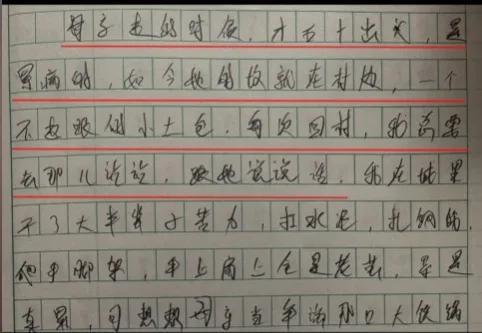 母亲走的时候，才五十出头，是
累病的，如今她的坟就在村边，一个
不起眼的小土包，每次回村，我总要
去那儿论论，跟她说说话。我在城里
干了大半辈子苦力，扛水泥，扎钢筋，
爬手脚架，手上肩上全是老茧，累是
真累，可想想母亲当年海那口大饭锅